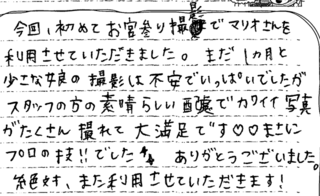 今回、初めてお宮参り撮影でマリオさんを
利用させていただきました。まだ1ヵ月と
少さな娘の撮影は不安でいっぱいでしたが
スタッフの方の素晴らしい配慮でカワイイ写真
がたくさん撮れて大満足です♡♡まさに
プロの技!!でした ありがとうございました。
絶対、また利用させていただきます!